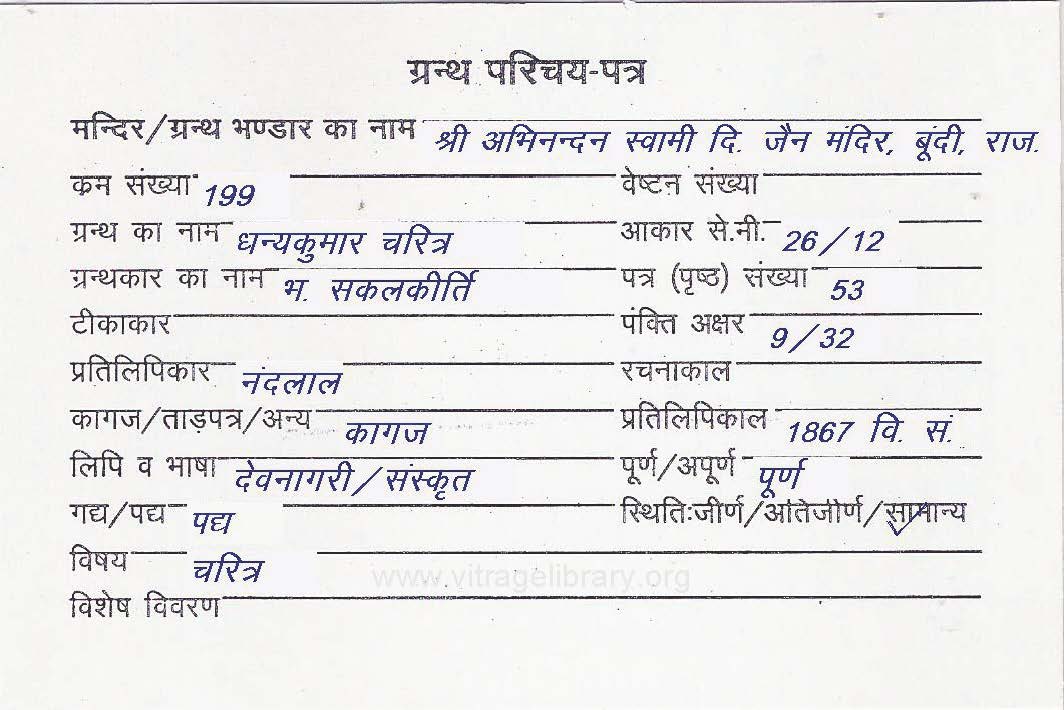 ग्रन्थ परिचय-पत्र
मन्दिर/ग्रन्थ भण्डार का नाम श्री अभिनन्दन स्वामी दि. जैन मंदिर, बूंदी, राज.
क्रम संख्या 199 वेष्टन संख्या
ग्रन्थ का नाम धन्यकुमार चरित्र आकार से.नी. 26/12
ग्रन्थकार का नाम भ. सकलकीर्ति पत्र (पृष्ठ) संख्या 53
टीकाकार पंक्ति अक्षर 9/32
प्रतिलिपिकार नंदलाल रचनाकाल
कागज/ताड़पत्र/अन्य कागज प्रतिलिपिकाल 1867 वि. सं.
लिपि व भाषा देवनागरी/संस्कृत पूर्ण/अपूर्ण पूर्ण
गद्य/पद्य पद्य स्थिति:जीर्ण/अतिजीर्ण/सामान्य
विषय चरित्र
www.vitragelibrary.org
विशेष विवरण